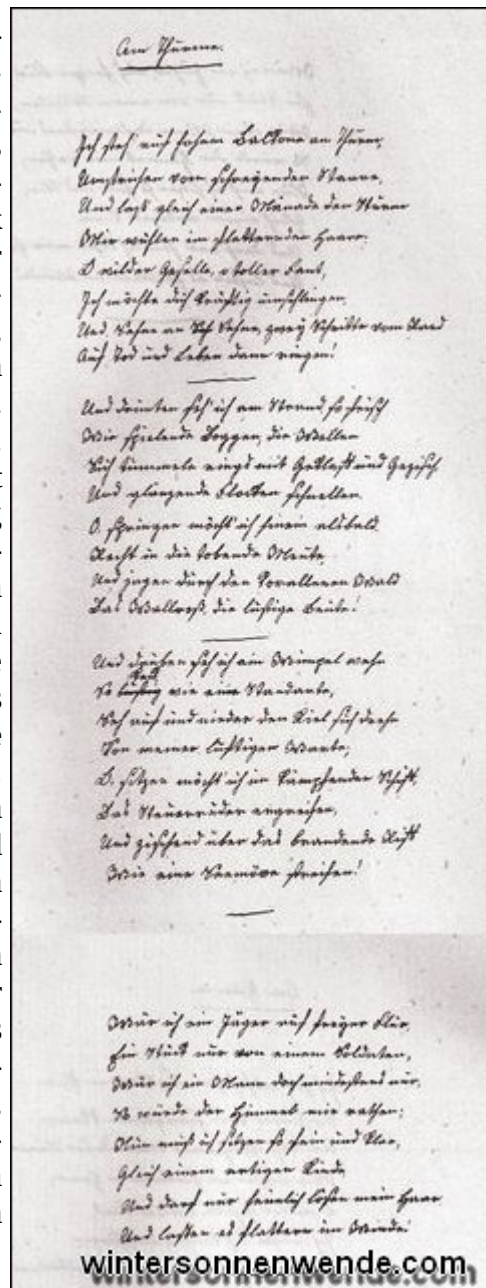 Am Thurme.
Ich steh' auf hohem Balkone am Thurm,
Umstrichen vom schreyenden Staare,
Und lass' gleich einer Mänade den Sturm
Mir wühlen im flatternden Haare;
O wilder Geselle, o toller Fant,
Ich möchte dich kräftig umschlingen,
Und, Sehne an Sehne, zwey Schritte vom Rand
Auf Tod und Leben dann ringen!
Und drunten seh' ich am Strand so frisch
Wie spielende Doggen, die Wellen
Sich tummeln rings mit Geklaff und Gezisch
Und glänzende Flocken schnellen.
O, springen möcht' ich hinein alsbald
Recht in die tobende Meute,
Und jagen durch den korallenen Wald
Das Wallroß, die lustige Beute!
Und drüben seh ich ein Wimpel wehn
keck
So lustig wie eine Standarte,
Seh auf und nieder den Kiel sich drehn
Von meiner luftigen Warte;
O, sitzen möcht' ich im kämpfenden Schiff,
Das Steuerruder ergreifen,
Und zischend über das brandende Riff
Wie eine Seemöve streifen!
Wär ich ein Jäger auf freyer Flur,
Ein Stück nur von einem Soldaten,
Wär ich ein Mann doch mindestens nur,
So würde der Himmel mir rathen;
Nun muß ich sitzen so fein und klar,
Gleich einem artigen Kinde,
Und darf nur heimlich lösen mein Haar,
Und lassen es flattern im Winde!
wintersonnenwende.com